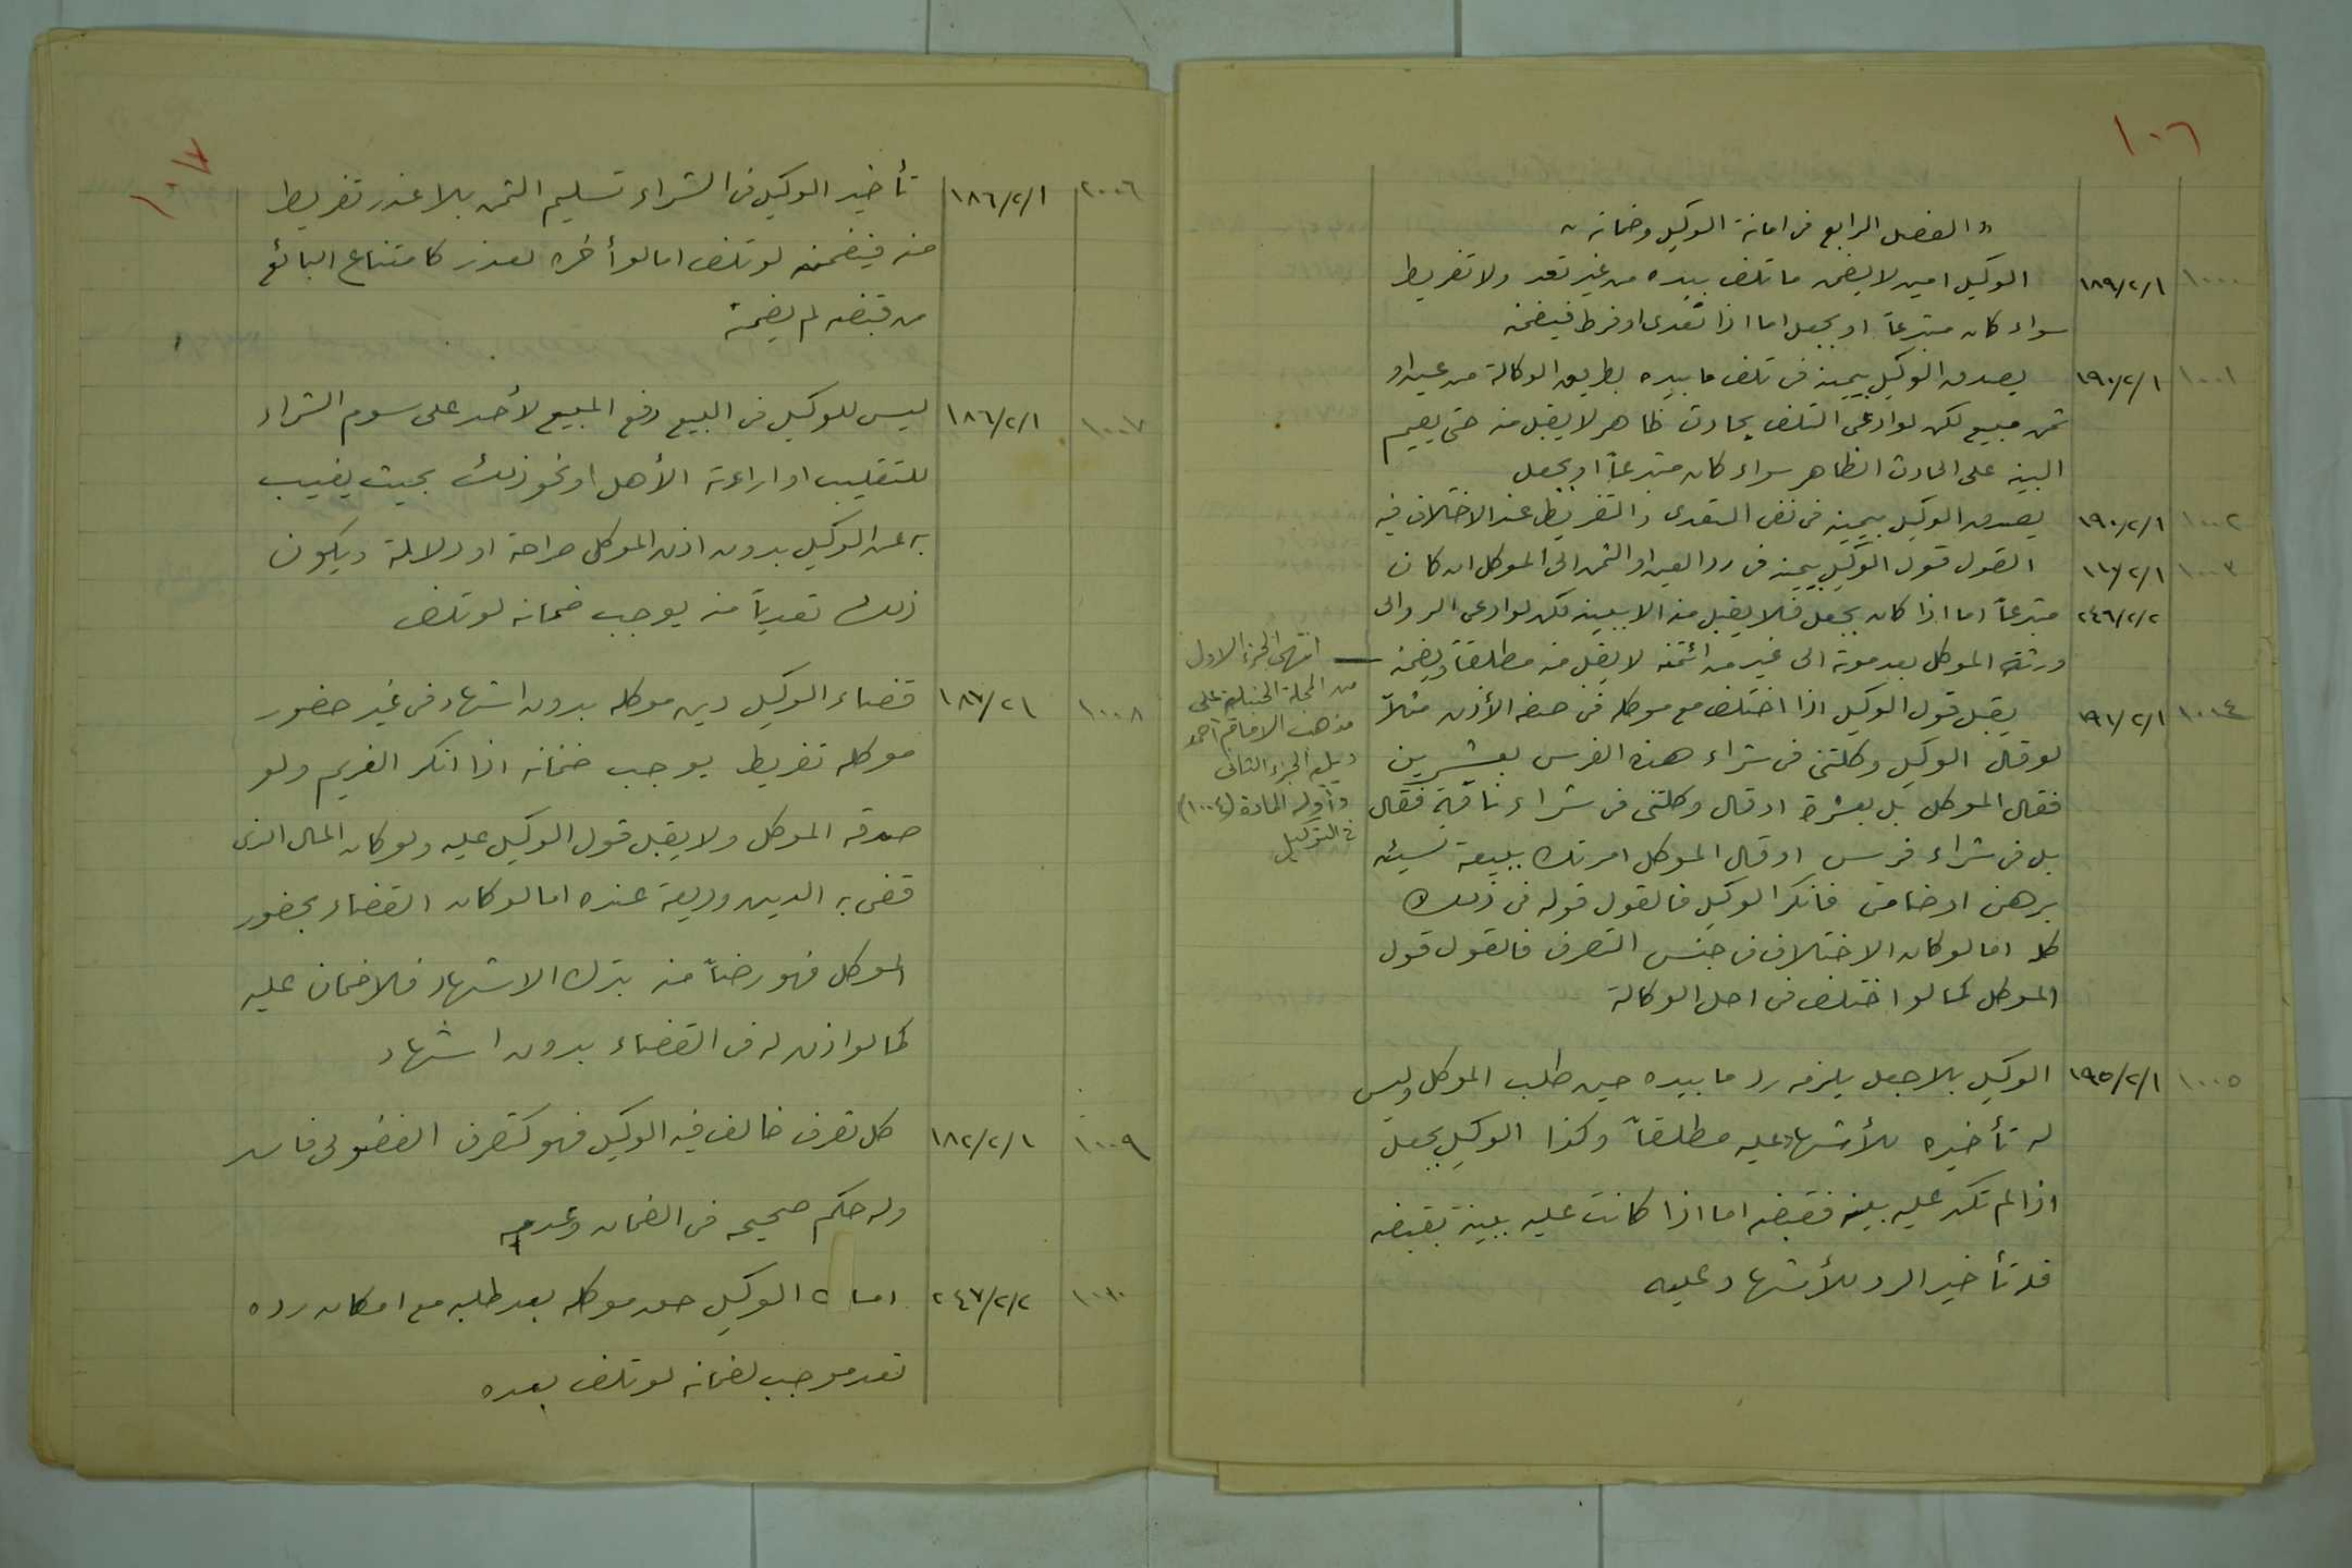 ١٠٦
« الفصل الرابع في امانة الوكيل وضمانه »
١٠٠٠ ١٨٩/٢/١ الوكيل امين لا يضمن ما تلف بيده من غير تعد ولا تفريط
سواء كان متبرعاً او بجعل اما اذا تعدى او فرط فيضمنه
١٠٠١ ١٩٠/٢/١ يصدق الوكيل بيمينه في تلف ما بيده بطريق الوكالة من عين او
ثمن مبيع لكن لو ادعى التلف بحادث ظاهر لا يقبل منه حتى يقيم
البينة على الحادث الظاهر سواء كان متبرعاً او بجعل
١٠٠٢ ١٩٠/٢/١ يصدق الوكيل بيمينه في نفي التعدى والتفريط عند الاختلاف فيه
١٠٠٣ القول قول الوكيل بيمينه في رد العين او الثمن الى الموكل ان كان
٢٤٦/٢/٢ متبرعاً اما اذا كان بجعل فلا يقبل منه الا ببينة لكن لو ادعى الرد الى
ورثة الموكل بعد موته الى غير من ائتمنه لا يقبل منه مطلقاً ويضمنه
١٠٠٤ ١٩١/٢/١ يقبل قول الوكيل اذا اختلف مع موكله في صفة الأذن مثلاً
لو قال الوكيل وكلتنى في شراء هذه الفرس بعشرين
فقال الموكل بل بعشرة او قال وكلتنى في شراء ناقة فقال
بل في شراء فرس او قال الموكل امرتك ببيعه نسيئه
برهن او ضامن فانكر الوكيل فالقول قوله في ذلك
كله اما لو كان الاختلاف في جنس التصرف فالقول قول
الموكل كما لو اختلف في اصل الوكالة
١٠٠٥ ١٩٥/٢/١ الوكيل بلا جعل يلزمه رد ما بيده حين طلب الموكل وليس
له تأخيره للأشهاد عليه مطلقاً وكذا الوكيل بجعل
اذا لم تكن عليه بينه فقبضه اما اذا كانت عليه بينة بقبضه
فله تأخير الرد للأشهاد عليه
انتهى الجزء الاول
من المجلة الحنبلية على
مذهب الامام احمد
ويليه الجزء الثاني
وأوله المادة (١٠٠٤)
في التوكيل
١٠٧
١٠٠٦ ١٨٦/٢/١ تأخير الوكيل في الشراء تسليم الثمن بلا عذر تفريط
منه فيضمنه لو تلف اما لو أخره لعذر كامتناع البائع
من قبضه لم يضمنه
١٠٠٧ ١٨٦/٢/١ ليس للوكيل في البيع دفع المبيع لأحد على سوم الشراء
للتقليب او اراءة الأهل او نحو ذلك بحيث يغيب
به عن الوكيل بدون اذن الموكل صراحة او دلالة ويكون
ذلك تعدياً منه يوجب ضمانه لو تلف
١٠٠٨ ١٨٧/٢١ قضاء الوكيل دين موكله بدون اشهاد في غير حضور
موكله تفريط يوجب ضمانه اذا انكر الغريم ولو
صدقه الموكل ولا يقبل قول الوكيل عليه ولو كان المال الذى
قضى به الدين وديعة عنده اما لو كان القضاء بحضور
الموكل فهو رضاً منه بترك الاشهاد فلا ضمان عليه
كما لو اذن له في القضاء بدون اشهاد
١٠٠٩ ١٨٢/٢/١ كل تصرف خالف فيه الوكيل فهو كتصرف الفضولى فاسد
وله حكم صحيحه في الضمان وعدمه
١٠١٠ ٢٤٧/٢/٢ الوكيل حق موكله بعد طلبه مع امكان رده
تعد موجب لضمانه لو تلف بعده